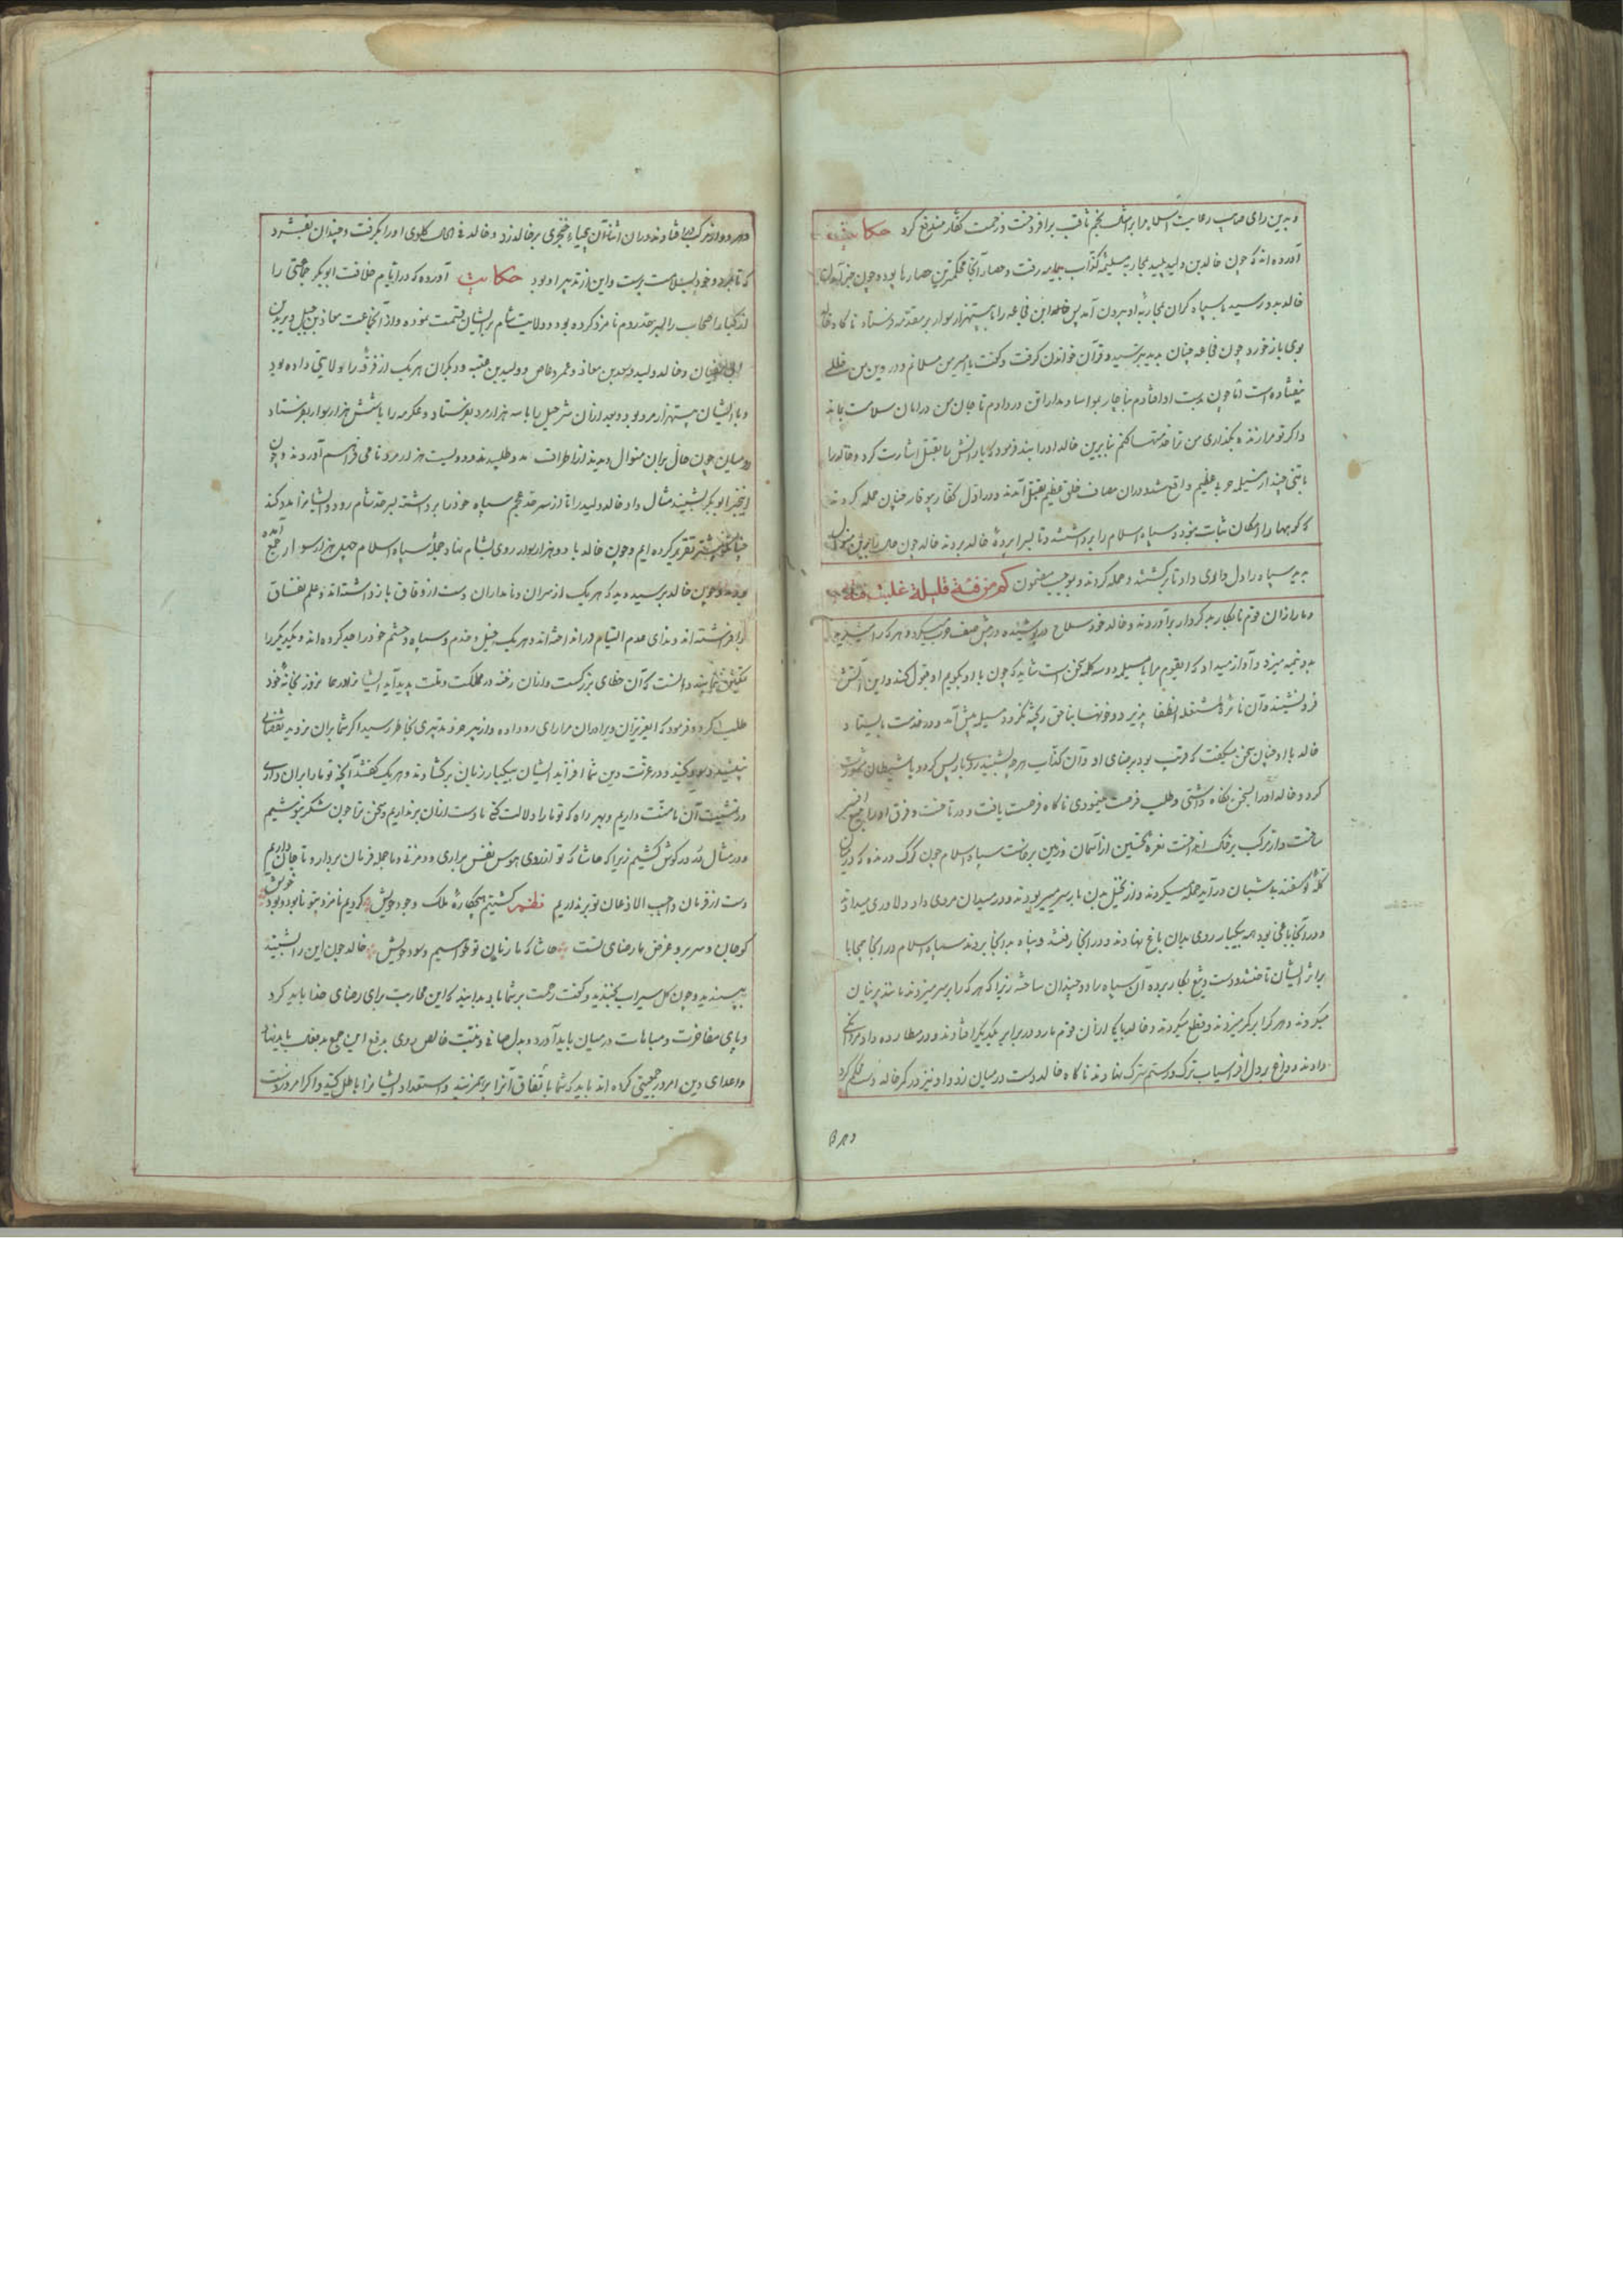 و بدین رای صایب رعایت اسلام را بر مثال نجم ثاقب برافروخت و زحمت کفار مندفع کرد حکایت
آورده‌اند که چون خالد بن ولید پلید بمحاربه مسیلمه کذاب بیمامه رفت و حصار آنجا محکمترین حصارها بود و چون خبر آمدن
خالد بدو رسید با سپاه گران بمحاربه او بیرون آمد پس خالد ابن مجاعه را با بیستهزار سوار بر مقدمه فرستاد ناگاه خالد
بوی باز خورد چون مجاعه چنان بدید بترسید و قرآن خواندن گرفت و گفت یا امیر من مسلمانم و در دین من خللی
نیفتاده است اما چون بدست او افتادم بناچار در دادم تا جان من در امان سلامت بماند
و اگر تو مرا زنده بگذاری من ترا خدمتها کنم بنابرین خالد او را بند فرمود و یارانش را بقتل اشارت کرد و خالد را
با تنی چند از مسیلمه حربی عظیم واقع شد و در آن مصاف خلق عظیم بقتل آمدند و در اول کفار چنان حمله کردند
که کوهها را امکان ثبات نبود و سپاه اسلام را برداشتند و تا بسراپردهٔ خالد بردند خالد چون حال بدین منوال
بدید سپاه را دل داد تا برگشتند و حمله کردند و بموجب مضمون کم من فئة قلیلة غلبت فئة
دمار از آن قوم نابکار بدکردار برآوردند و خالد خود سلاح در پوشیده در پیش صف حرب میکرد و هر که را
بدو نیمه میزد و آواز میداد که ایقوم مرا با مسیلمه دو سه کلمه سخن است شاید که چون با او بگویم او قبول کند و این آتش
فرو نشیند و آن نائره مشتعله انطفا پذیرد و خونها بناحق ریخته نگردد مسیلمه پیش آمد و در خدمت بایستاد
خالد با او چنان سخن میگفت که قریب بود برضای او و آن کذاب هر چه بشنیدی باز پس کردی با شیطان مشورت
کرد و خالد او را بسخن نگاه داشتی و طلب فرصت مینمودی ناگاه فرصت یافت و در تاخت و فرق او را
ساخت و از مرکب بر خاک انداخت نعره تحسین از آسمان و زمین برخاست سپاه اسلام چون گرگ درنده که در
گله گوسفند بی شبان در آید حمله میکردند و از نخیل بدن بار سر میبریدند و در میدان مردی داد دلاوری میدادند
و در آنجا باغی بود همه بیکبار روی بدان باغ نهادند و در آنجا رفتند و پناه بدانجا بردند سپاه اسلام در آنجا بمحابا
بر اثر ایشان تاختند و دست و تیغ بکار برده آن سپاه را دو چندان ساختند زیرا که هر که را بر سر میزدند مانند پرنیان
میکردند و هر کرا بر کمر میزدند دو قطع میکردند و خالد با یکی از آن قوم مارد در برابر یکدیگر افتادند و در مطارده داد مردانگی
دادند و داغ بر دل افراسیاب ترک و رستم سترک نهادند ناگاه خالد دست در میان زد و او نیز در کمر خالد دست محکم کرد
و هر دو از مرکب در افتادند و در آن اثنا آن بیحیا خنجری بر خالد زد و خالد فی الحال گلوی او را بگرفت و چندان بفشرد
که تا بمرد و خود بسلامت برست و این از تدبیر او بود حکایت آورده که در ایام خلافت ابوبکر جماعتی را
از کبار اصحاب را بسرحد روم نامزد کرده بود و ولایت شام بر ایشان قسمت نموده و از آنجماعت معاذ بن جبل و یزید بن
ابی سفیان و خالد ولید و سعد بن معاذ و عمرو عاص و ولید بن عقبه و دیگران هر یک از فرق را بولایتی داده بود
و با ایشان بیستهزار مرد بود و بعد از آن شرحبیل را با سه هزار مرد بفرستاد و عکرمه را با شش هزار سوار بفرستاد
رومیان چون حال بر آن منوال دیدند از اطراف مدد طلبیدند و دویست هزار مرد نامی فراهم آوردند و چون
اینخبر ابوبکر بشنید مثال داد و خالد ولید را تا از سرحد عجم سپاه خود را برداشته بسرحد شام رود و ایشانرا مدد کند
چنانکه پیشتر تقریر کرده ایم و چون خالد با دو هزار سوار روی بشام نهاد جملهٔ سپاه اسلام چهل هزار سوار جمع آمده
بودند و چون خالد برسید دید که هر یک از سران و نامداران دست از وفاق باز داشته‌اند و علم نفاق
برافراشته‌اند و ندای عدم التیام در انداخته‌اند و هر یک خیل و خدم و سپاه و حشم خود را جدا کرده‌اند و یکدیگر را
تمکین نمینمایند دانست که آن خطای بزرگست و از آن رخنه در مملکت و ملت پدید آید ایشانرا در حال روز بخانه خود
طلب کرد و فرمود که ایعزیزان و برادران مرا رای رو داده و از پیر خرد تدبیری بخاطر رسید اگر شما بران نروید نقصانی
نپذیرد و در عزت دین شما افزاید ایشان بیکبار زبان برگشادند و هر یک گفتند آنچه تو ما را بران داری
در مشیت آن ما منت داریم و بهر راه که تو ما را دلالت کنی ما دست از آن برنداریم و سخن ترا چون شکر بنوشیم
و در مثال دُر در گوش کشیم زیرا که حاشا که تو از روی هوس نفس برداری و دم زنی و ما جمله فرمان بردار و تا جان داریم
دست از فرمان واجب الاذعان تو برنداریم نظم گشتیم هیچکاره ملک وجود خویش کردیم نامزد بتو نابود و بود خویش
گو جان و سر برو غرض ما رضای تست حاشا که ما زیان تو خواهیم و سود خویش خالد چون این را بشنید
بپسندید و چون گل سیراب بخندید و گفت رحمت بر شما باد بدانید که این محاربت برای رضای خدا باید کرد
و پای مفاخرت و مباهات در میان نباید آورد و بدل صافی و نیت خالص روی بدفع این جمع بدفعال باید نهاد
و اعدای دین امروز جمعیتی کرده‌اند باید که شما باتفاق آنرا بر هم زنید و استعداد ایشانرا باطل کنید و اگر امروز دست